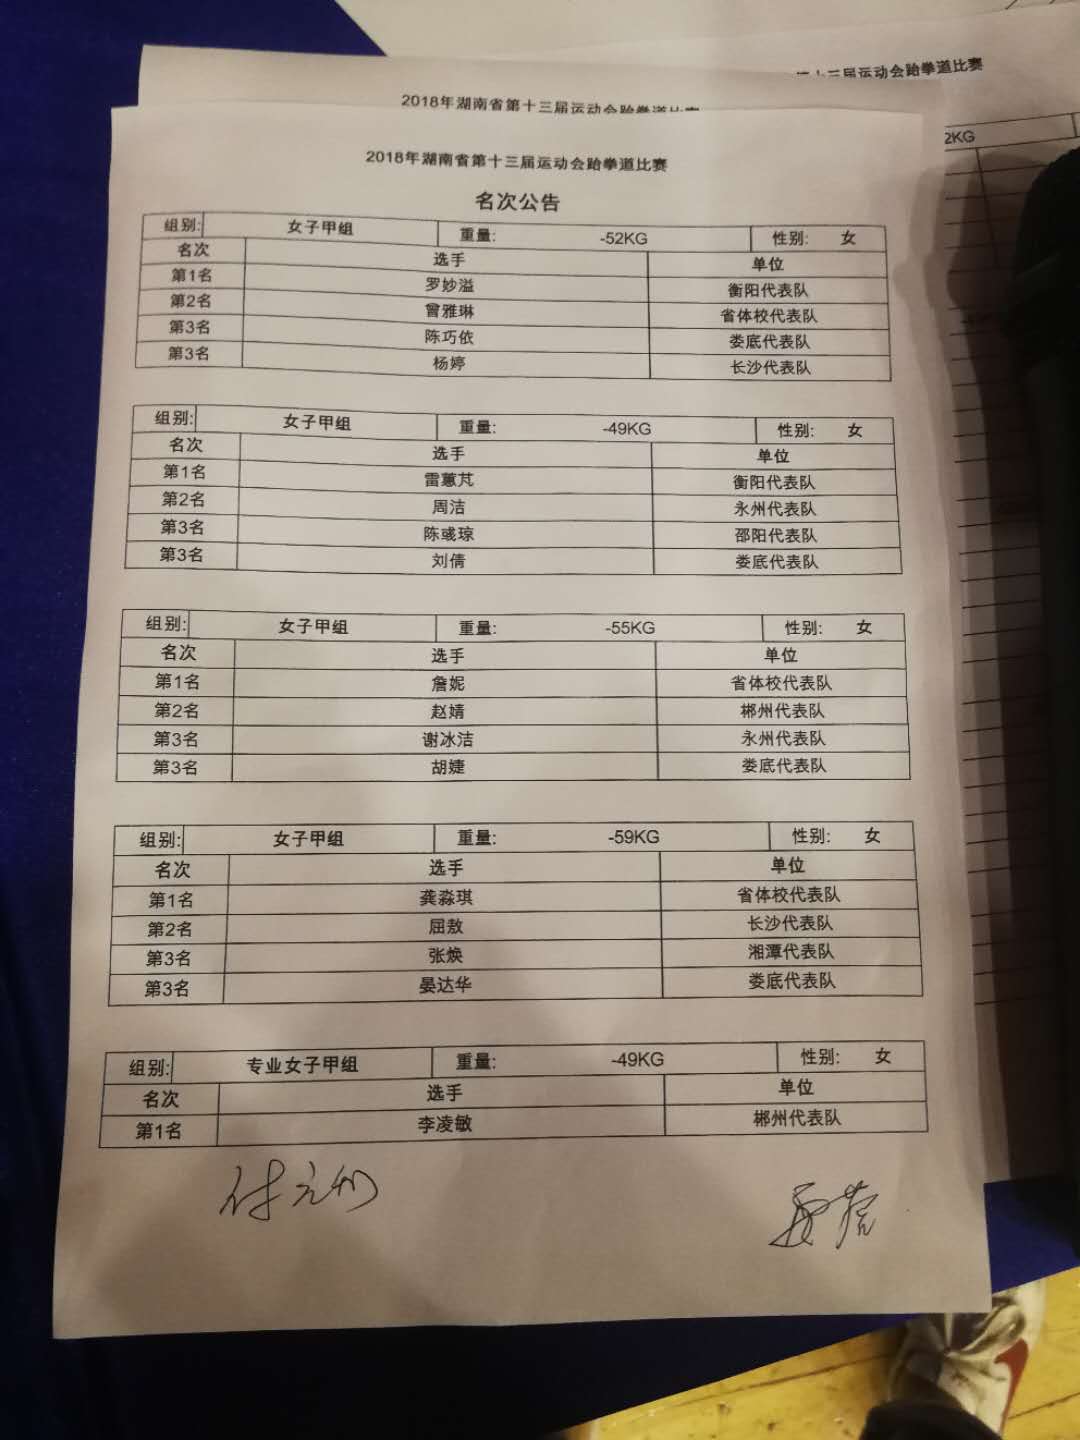 第十三届运动会跆拳道比赛
2018年湖南省第十三届运动会跆拳道比赛
2KG
2018年湖南省第十三届运动会跆拳道比赛
名次公告
组别: 女子甲组 重量: -52KG 性别: 女
名次 选手 单位
第1名 罗妙溢 衡阳代表队
第2名 曾雅琳 省体校代表队
第3名 陈巧依 娄底代表队
第3名 杨婷 长沙代表队
组别: 女子甲组 重量: -49KG 性别: 女
名次 选手 单位
第1名 雷蕙芃 衡阳代表队
第2名 周洁 永州代表队
第3名 陈彧琼 邵阳代表队
第3名 刘倩 娄底代表队
组别: 女子甲组 重量: -55KG 性别: 女
名次 选手 单位
第1名 詹妮 省体校代表队
第2名 赵婧 郴州代表队
第3名 谢冰洁 永州代表队
第3名 胡婕 娄底代表队
组别: 女子甲组 重量: -59KG 性别: 女
名次 选手 单位
第1名 龚淼琪 省体校代表队
第2名 屈敖 长沙代表队
第3名 张焕 湘潭代表队
第3名 晏达华 娄底代表队
组别: 专业女子甲组 重量: -49KG 性别: 女
名次 选手 单位
第1名 李凌敏 郴州代表队